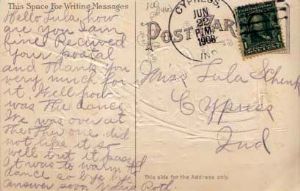 This Space For Writing Messages
Hello Lula, how
are you I am
fine. Received
your postal
and thank you
very much for
it. Well how
was the dance
We was over at
the
one did
not like it so
well but it passed
it was to warm to
dance so bye bye
answer soon
POSTCARD
CYPRESS,
JUN
22
P.M.
1908
IND.
Miss Lula Schenk
Cypress
Ind
This side for the Address only.